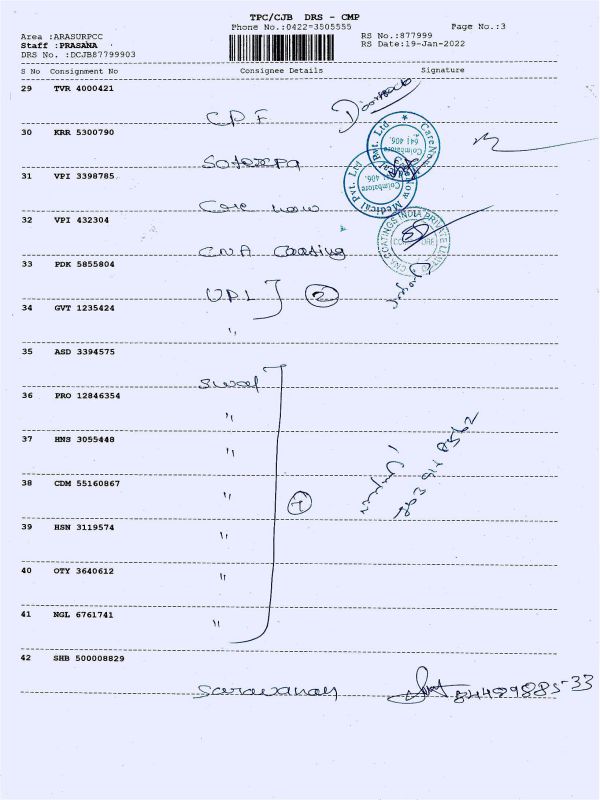 TPC/CJB DRS - CMP
Phone No.:0422-3505555
Page No.:3
Area :ARASURPCC
RS No.:877999
Staff :PRASANA
RS Date:19-Jan-2022
DRS No. :DCJB87799903
S No Consignment No Consignee Details Signature
29 TVR 4000421
CPF
30 KRR 5300790
31 VPI 3398785
Care now
32 VPI 432304
CNA Coating
33 PDK 5855804
UPL 2
34 GVT 1235424
"
35 ASD 3394575
36 PRO 12846354
"
37 HNS 3055448
"
38 CDM 55160867
" 7
39 HSN 3119574
"
40 OTY 3640612
"
41 NGL 6761741
"
42 SHB 500008829
Saravanan
CareNow Medical Pvt. Ltd
Coimbatore
641 406.
CareNow Medical Pvt. Ltd
Coimbatore
641 406.
CNA COATINGS INDIA PRIVATE LIMITED